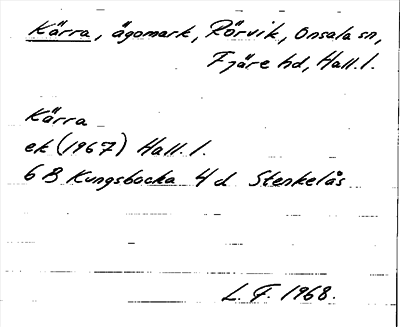 Kärra, ägomark, Rörvik, Onsala sn,
Fjäre hd, Hall.l.
Kärra
ek (1967) Hall.l.
6 B Kungsbacka 4 d Stenkelås
L. F. 1968.